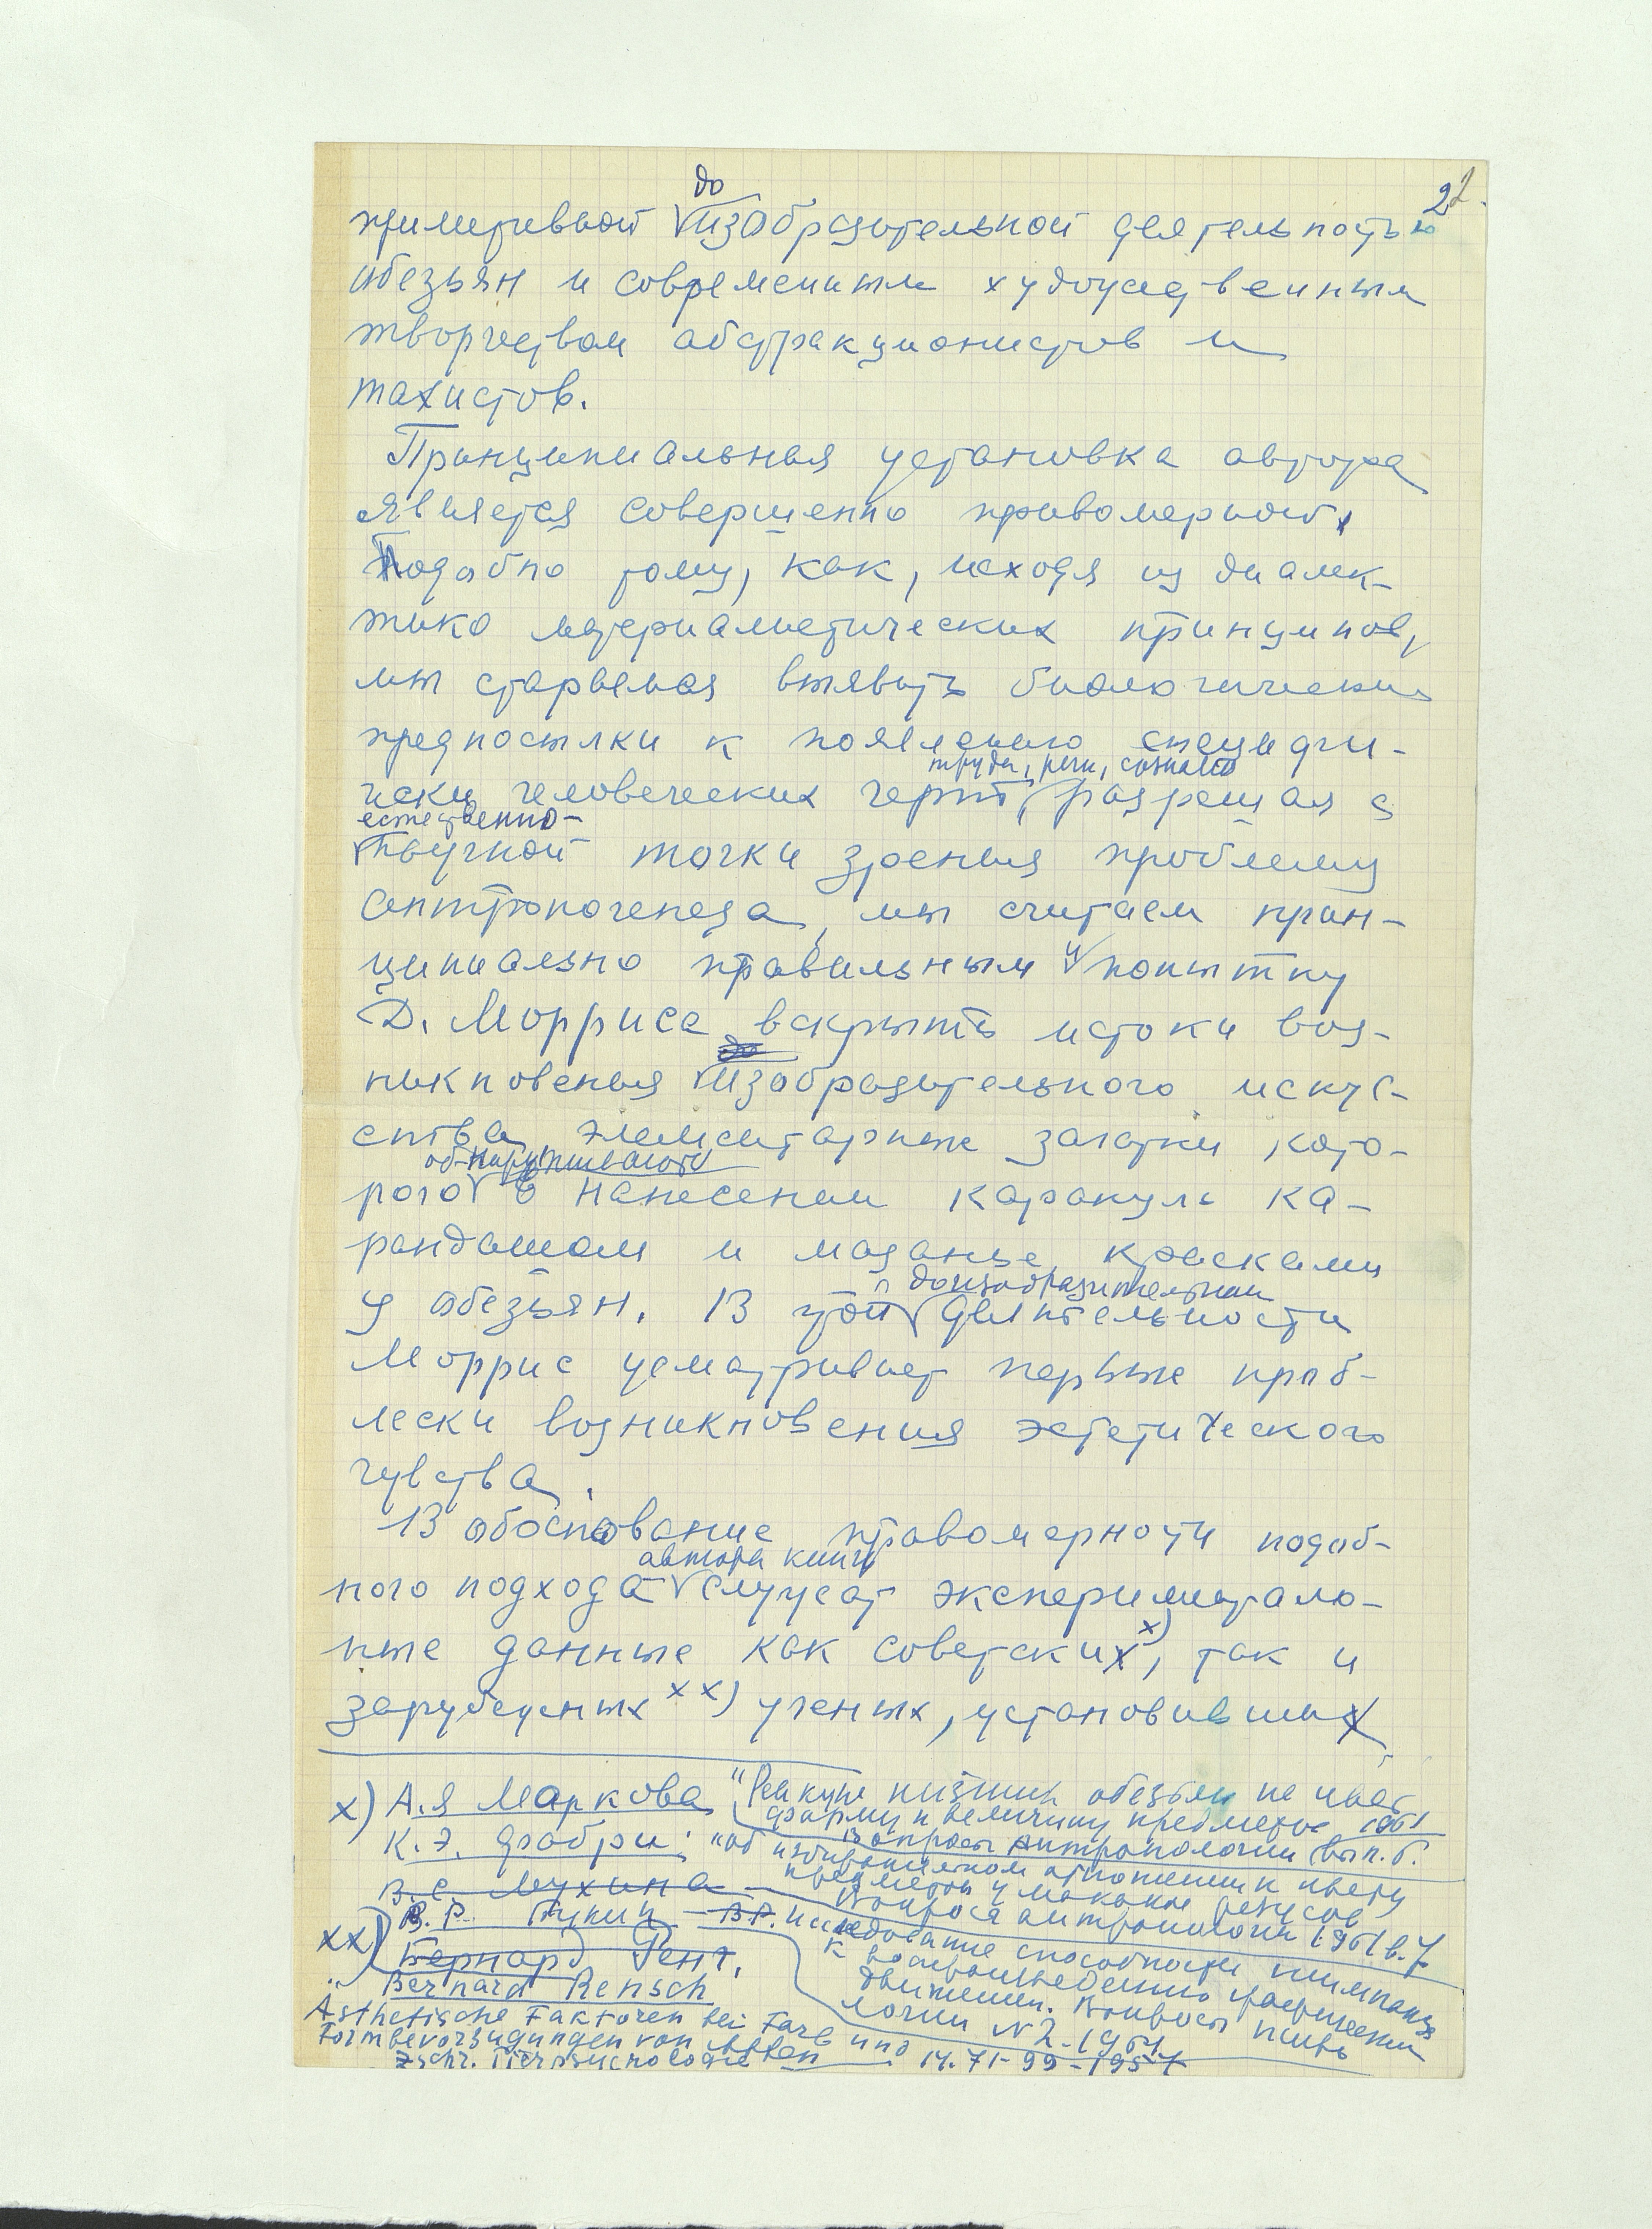 22.
до
примитивной изобразительной деятельностью
обезьян и современным художественным
творчеством абстракционистов и
тахистов.
Принципиальная установка автора
является совершенно правомерной,
Подобно тому, как, исходя из диалек-
тико материалистических принципов,
мы стараемся выявить биологические
предпосылки к появлению специфи-
труда, речи, сознания
чески человеческих черт, разрешая с
естественно-
научной точки зрения проблему
антропогенеза, мы считаем прин-
ципиально правильным и попытку
Д. Морриса вскрыть истоки воз-
до
никновения изобразительного искус-
ства, элементарные зачатки кото-
обнаруживаются
рого в нанесении каракуль ка-
рандашом и мазанье красками
доизобразительной
у обезьян. В этой деятельности
Моррис усматривает первые проб-
лески возникновения эстетического
чувства.
В обоснование правомерности подоб-
автора книги
ного подхода служат эксперименталь-
ные данные как советских x), так и
зарубежных xx) ученых, установивших
x) А.Я Маркова "Реакция низших обезьян на цвет
форму и величину предметов 1961
Вопросы антропологии вып. 6.
К.Э. Фабри: "об избирательном отношении к цвету
предмета у макаки резусов
Вопросы антропологии 1961 в. 7
В.С. Мухина
В.Р. Букин В.Р. Исследование способности шимпанзе
к воспроизведению графических
движений. Вопросы психо
логии N 2 - 1961.
xx) Бернард Ренш,
Bernard Rensch
Ästhetische Faktoren bei Farb und
Formbevorzugungen von Affen
Zschr. Tierpsychologie 14. 71-99-1957